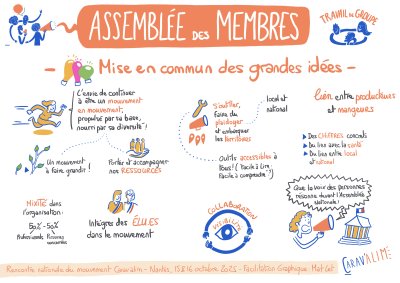 ASSEMBLÉE DES MEMBRES
TRAVAIL DE GROUPE
- Mise en commun des grandes idées -
L'envie de continuer
à être un mouvement
en mouvement,
propulsé par sa base,
nourri par sa diversité !
S'outiller,
faire du
plaidoyer
et embarquer
les territoires
local et
national
lien entre producteurs
et mangeurs
Des CHIFFRES concrets
Du lien avec la santé
Du lien entre local
et national
Un mouvement
à faire grandir !
Porter et accompagner
nos RESSOURCES
Outils accessibles à
tous ! (facile à lire
facile à comprendre)
Mixité dans
l'organisation
50% - 50%
Professionnels Personnes
concernées
Intégrer des ÉLU.ES
dans le mouvement
COLLABORATION
VISIBILITÉ
Que la voix des personnes
résonne devant l'Assemblée
Nationale !
CARAV'ALIM'
Rencontre nationale du mouvement Carav'alim - Nantes, 15 & 16 octobre 2025 - Facilitation Graphique